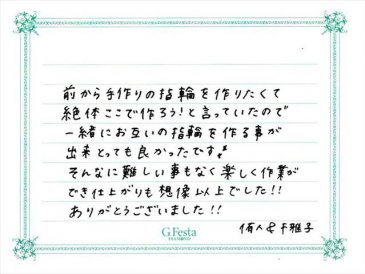 前から手作りの指輪を作りたくて
絶体ここで作ろう!と言っていたので
一緒にお互いの指輪を作る事が
出来とっても良かったです。
そんなに難しい事もなく楽しく作業が
でき仕上がりも想像以上でした!!
ありがとうございました!!
佰人&千雅子
G.Festa
DIAMOND